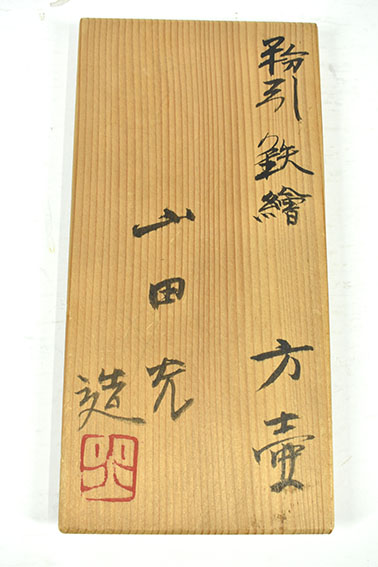 粉引鉄繪 方壷
山田光
造
光